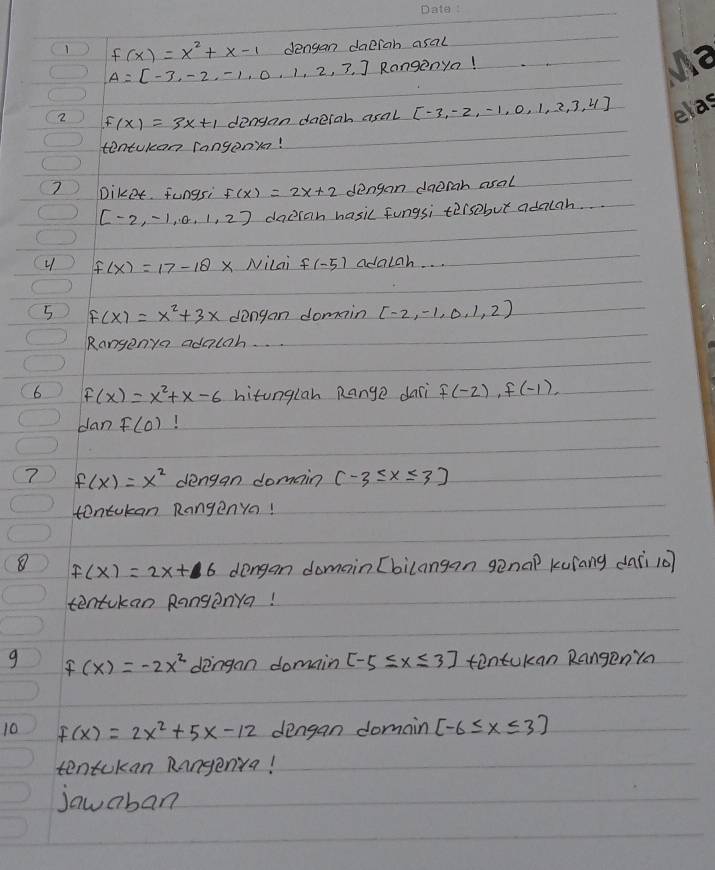 Date :
1 f(x) = x² + x - 1 dengan daerah asal
A = [-3, -2, -1, 0, 1, 2, 3,] Rangenya!
Ma
elas
2 f(x) = 3x+1 dengan daerah asal [-3, -2, -1, 0, 1, 2, 3, 4]
tentukan rangenya!
3 Diket. fungsi f(x) = 2x + 2 dengan daerah asal
[-2, -1, 0, 1, 2] daerah hasil fungsi tersebut adalah...
4 f(x) = 17 - 18 x Nilai f(-5) adalah...
5 f(x) = x² + 3x dengan domain [-2, -1, 0, 1, 2)
Rangenya adalah...
6 f(x) = x² + x - 6 hitunglah Range dari f(-2), f(-1).
dan f(0) !
7 f(x) = x² dengan domain [-3 ≤ x ≤ 3]
tentukan Rangenya!
8 f(x) = 2x + 6 dengan domain [bilangan genap kurang dari 10]
tentukan Rangenya!
9 f(x) = -2x² dengan domain [-5 ≤ x ≤ 3] tentukan Rangenya
10 f(x) = 2x² + 5x - 12 dengan domain [-6 ≤ x ≤ 3]
tentukan Rangenya!
jawaban